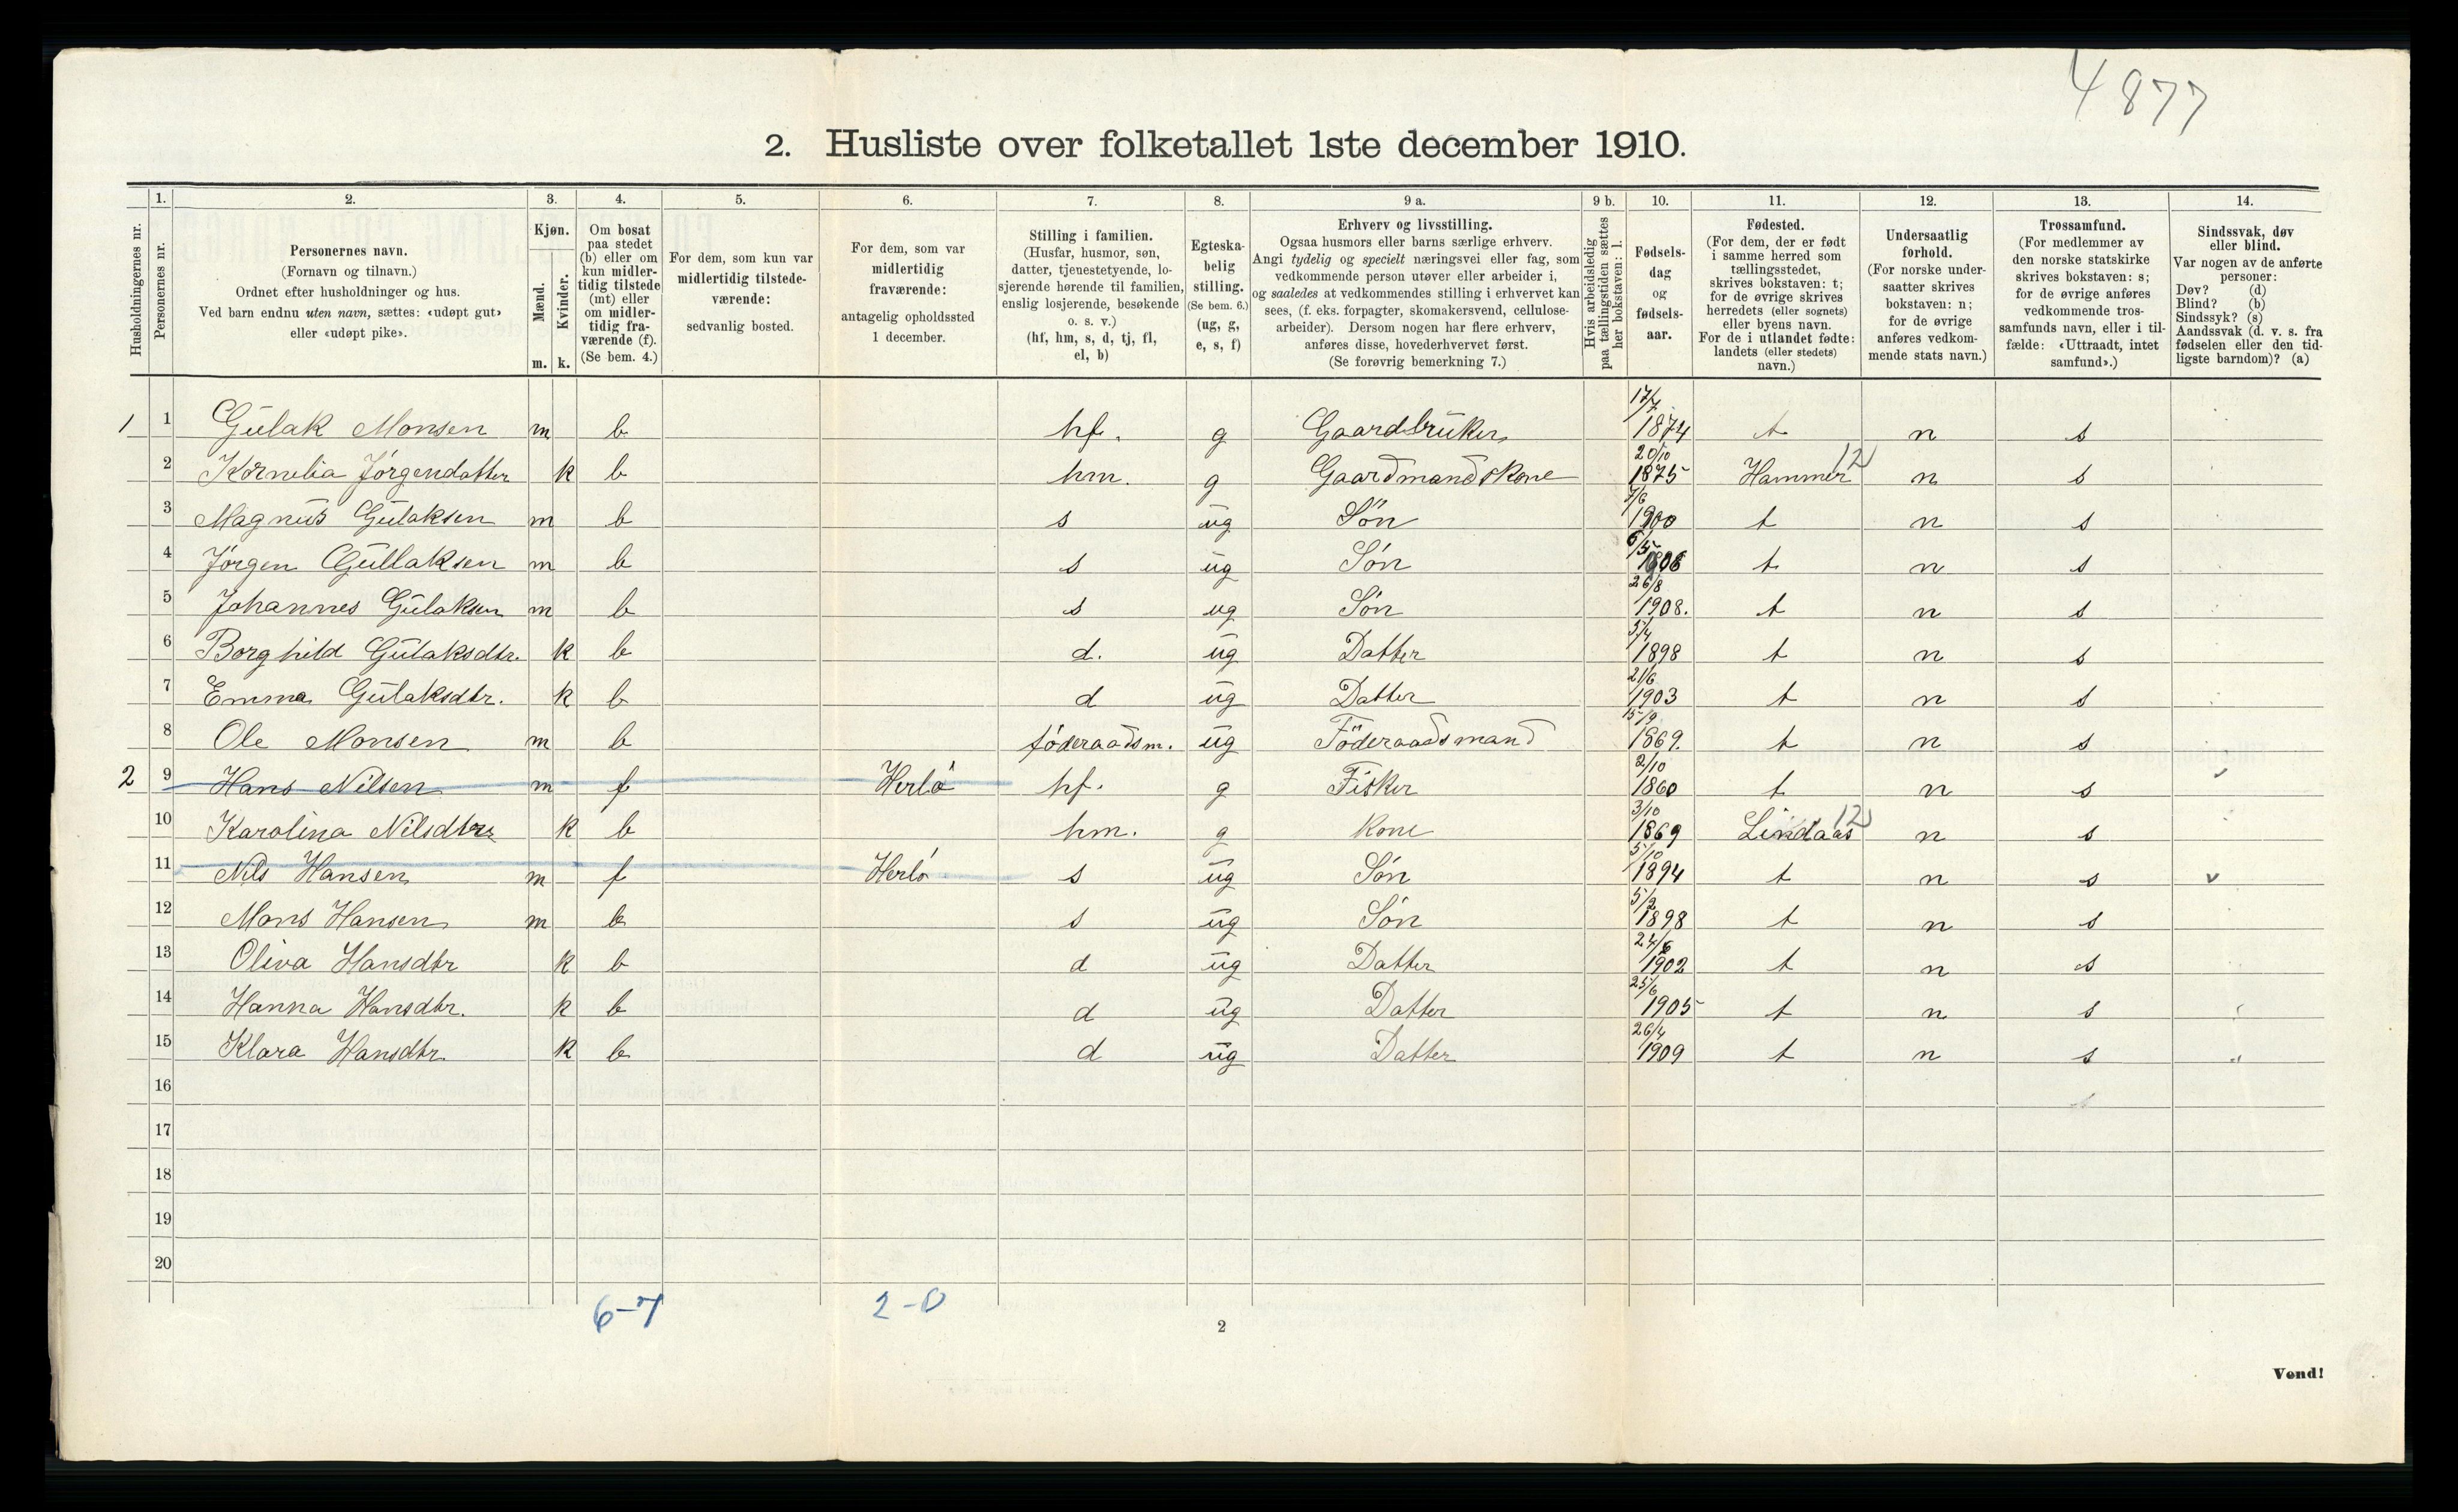 4877
2. Husliste over folketallet 1ste december 1910.
Husholdningernes nr.
1. Personernes nr.
2. Personernes navn. (Fornavn og tilnavn.) Ordnet efter husholdninger og hus. Ved barn endnu uten navn, sættes: «udøpt gut» eller «udøpt pike».
3. Kjøn. Mænd. m. Kvinder. k.
4. Om bosat paa stedet (b) eller om kun midlertidig tilstede (mt) eller om midlertidig fraværende (f). (Se bem. 4.)
5. For dem, som kun var midlertidig tilstedeværende: sedvanlig bosted.
6. For dem, som var midlertidig fraværende: antagelig opholdssted 1 december.
7. Stilling i familien. (Husfar, husmor, søn, datter, tjenestetyende, losjerende hørende til familien, enslig losjerende, besøkende o. s. v.) (hf, hm, s, d, tj, fl, el, b)
8. Egteskabelig stilling. (Se bem. 6.) (ug, g, e, s, f)
9 a. Erhverv og livsstilling. Ogsaa husmors eller barns særlige erhverv. Angi tydelig og specielt næringsvei eller fag, som vedkommende person utøver eller arbeider i, og saaledes at vedkommendes stilling i erhvervet kan sees, (f. eks. forpagter, skomakersvend, cellulosearbeider). Dersom nogen har flere erhverv, anføres disse, hovederhvervet først. (Se forøvrig bemerkning 7.)
9 b. Hvis arbeidsledig paa tællingstiden sættes her bokstaven: l.
10. Fødselsdag og fødselsaar.
11. Fødested. (For dem, der er født i samme herred som tællingsstedet, skrives bokstaven: t; for de øvrige skrives herredets (eller sognets) eller byens navn. For de i utlandet fødte: landets (eller stedets) navn.)
12. Undersaatlig forhold. (For norske undersaatter skrives bokstaven: n; for de øvrige anføres vedkommende stats navn.)
13. Trossamfund. (For medlemmer av den norske statskirke skrives bokstaven: s; for de øvrige anføres vedkommende trossamfunds navn, eller i tilfælde: «Uttraadt, intet samfund».)
14. Sindssvak, døv eller blind. Var nogen av de anførte personer: Døv? (d) Blind? (b) Sindssyk? (s) Aandssvak (d. v. s. fra fødselen eller den tidligste barndom)? (a)
1 1 Gulak Monsen m b hf. g Gaardbruker 17/7 1874 t n s
2 Kornelia Jørgendatter k b hm. g Gaardmandskone 20/10 1875 Hammer 12 n s
3 Magnus Gulaksen m b s ug Søn 7/6 1900 t n s
4 Jørgen Gullaksen m b s ug Søn 6/5 1906 t n s
5 Johannes Gulaksen m b s ug Søn 26/8 1908. t n s
6 Borghild Gulaksdtr. k b d. ug Datter 5/4 1898 t n s
7 Emma Gulaksdtr. k b d ug Datter 21/6 1903 t n s
8 Ole Monsen m b føderaadsm. ug Föderaadsmand 15/9 1869. t n s
2 9 Hans Nilsen m f Herlö hf. g Fisker 2/10 1860 t n s
10 Karolina Nilsdtr k b hm. g kone 3/10 1869 Lindaas 12 n s
11 Nils Hansen m f Herlö s ug Søn 5/10 1894 t n s v
12 Mons Hansen m b s ug Søn 5/2 1898 t n s
13 Oliva Hansdtr k b d ug Datter 24/6 1902 t n s
14 Hanna Hansdtr. k b d ug Datter 25/6 1905 t n s
15 Klara Hansdtr. k b d ug Datter 26/4 1909 t n s
16
17
18
19
20
6-7 2-0
2
Vend!